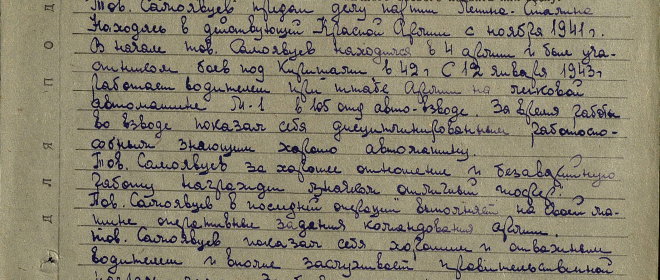 Тов. Самоявцев предан делу партии Ленина-Сталина
Находясь в действующей Красной Армии с ноября 1941 г.
В начале тов. Самоявцев находился в 4 армии и был уча-
стником боев под Киришами в 42 г С 12 января 1943 г
работает водителем при штабе Армии на легковой
автомашине М-1 в 105 отд авто-взводе. За время работы
во взводе показал себя дисциплинированным работоспо-
собным знающим хорошо автомашину.
Тов. Самоявцев за хорошее отношение и безаварийную
работу награжден значком отличный шофер.
Тов. Самоявцев в последней операции выполнял на своей ма-
шине оперативные задания командования армии.
тов. Самоявцев показал себя хорошим и отважным
водителем и вполне заслуживает правительственной
Д Л Я П О Д